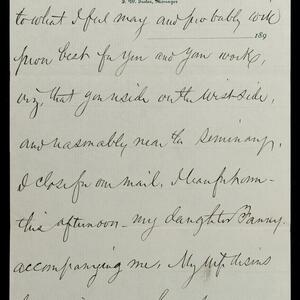 to what I feel may and probably will
Manager
189
prove best for you and your work,
viz, that you reside on the West side,
and reasonably near the Seminary.
I close for our mail. I leave for home
this afternoon - my daughter Fanny
accompanying me. My wife